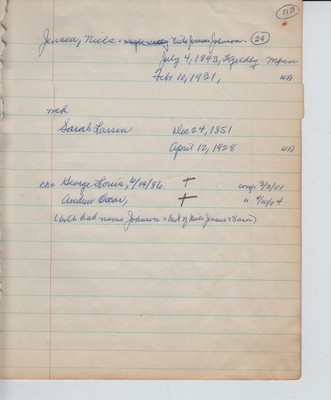 113
Jensen, Niels - Niels Jensen Johnson. 29
July 4, 1843,
Feb 10, 1931, WA
md
Sarah Larsen Dec 24, 1851
April 12, 1928 WA
Ch- George Louis, 4/19/86 + conf 3/3/01
Andrew Oscar, + " 4/10/04
(both had name Johnson = but of Niels Jensen +